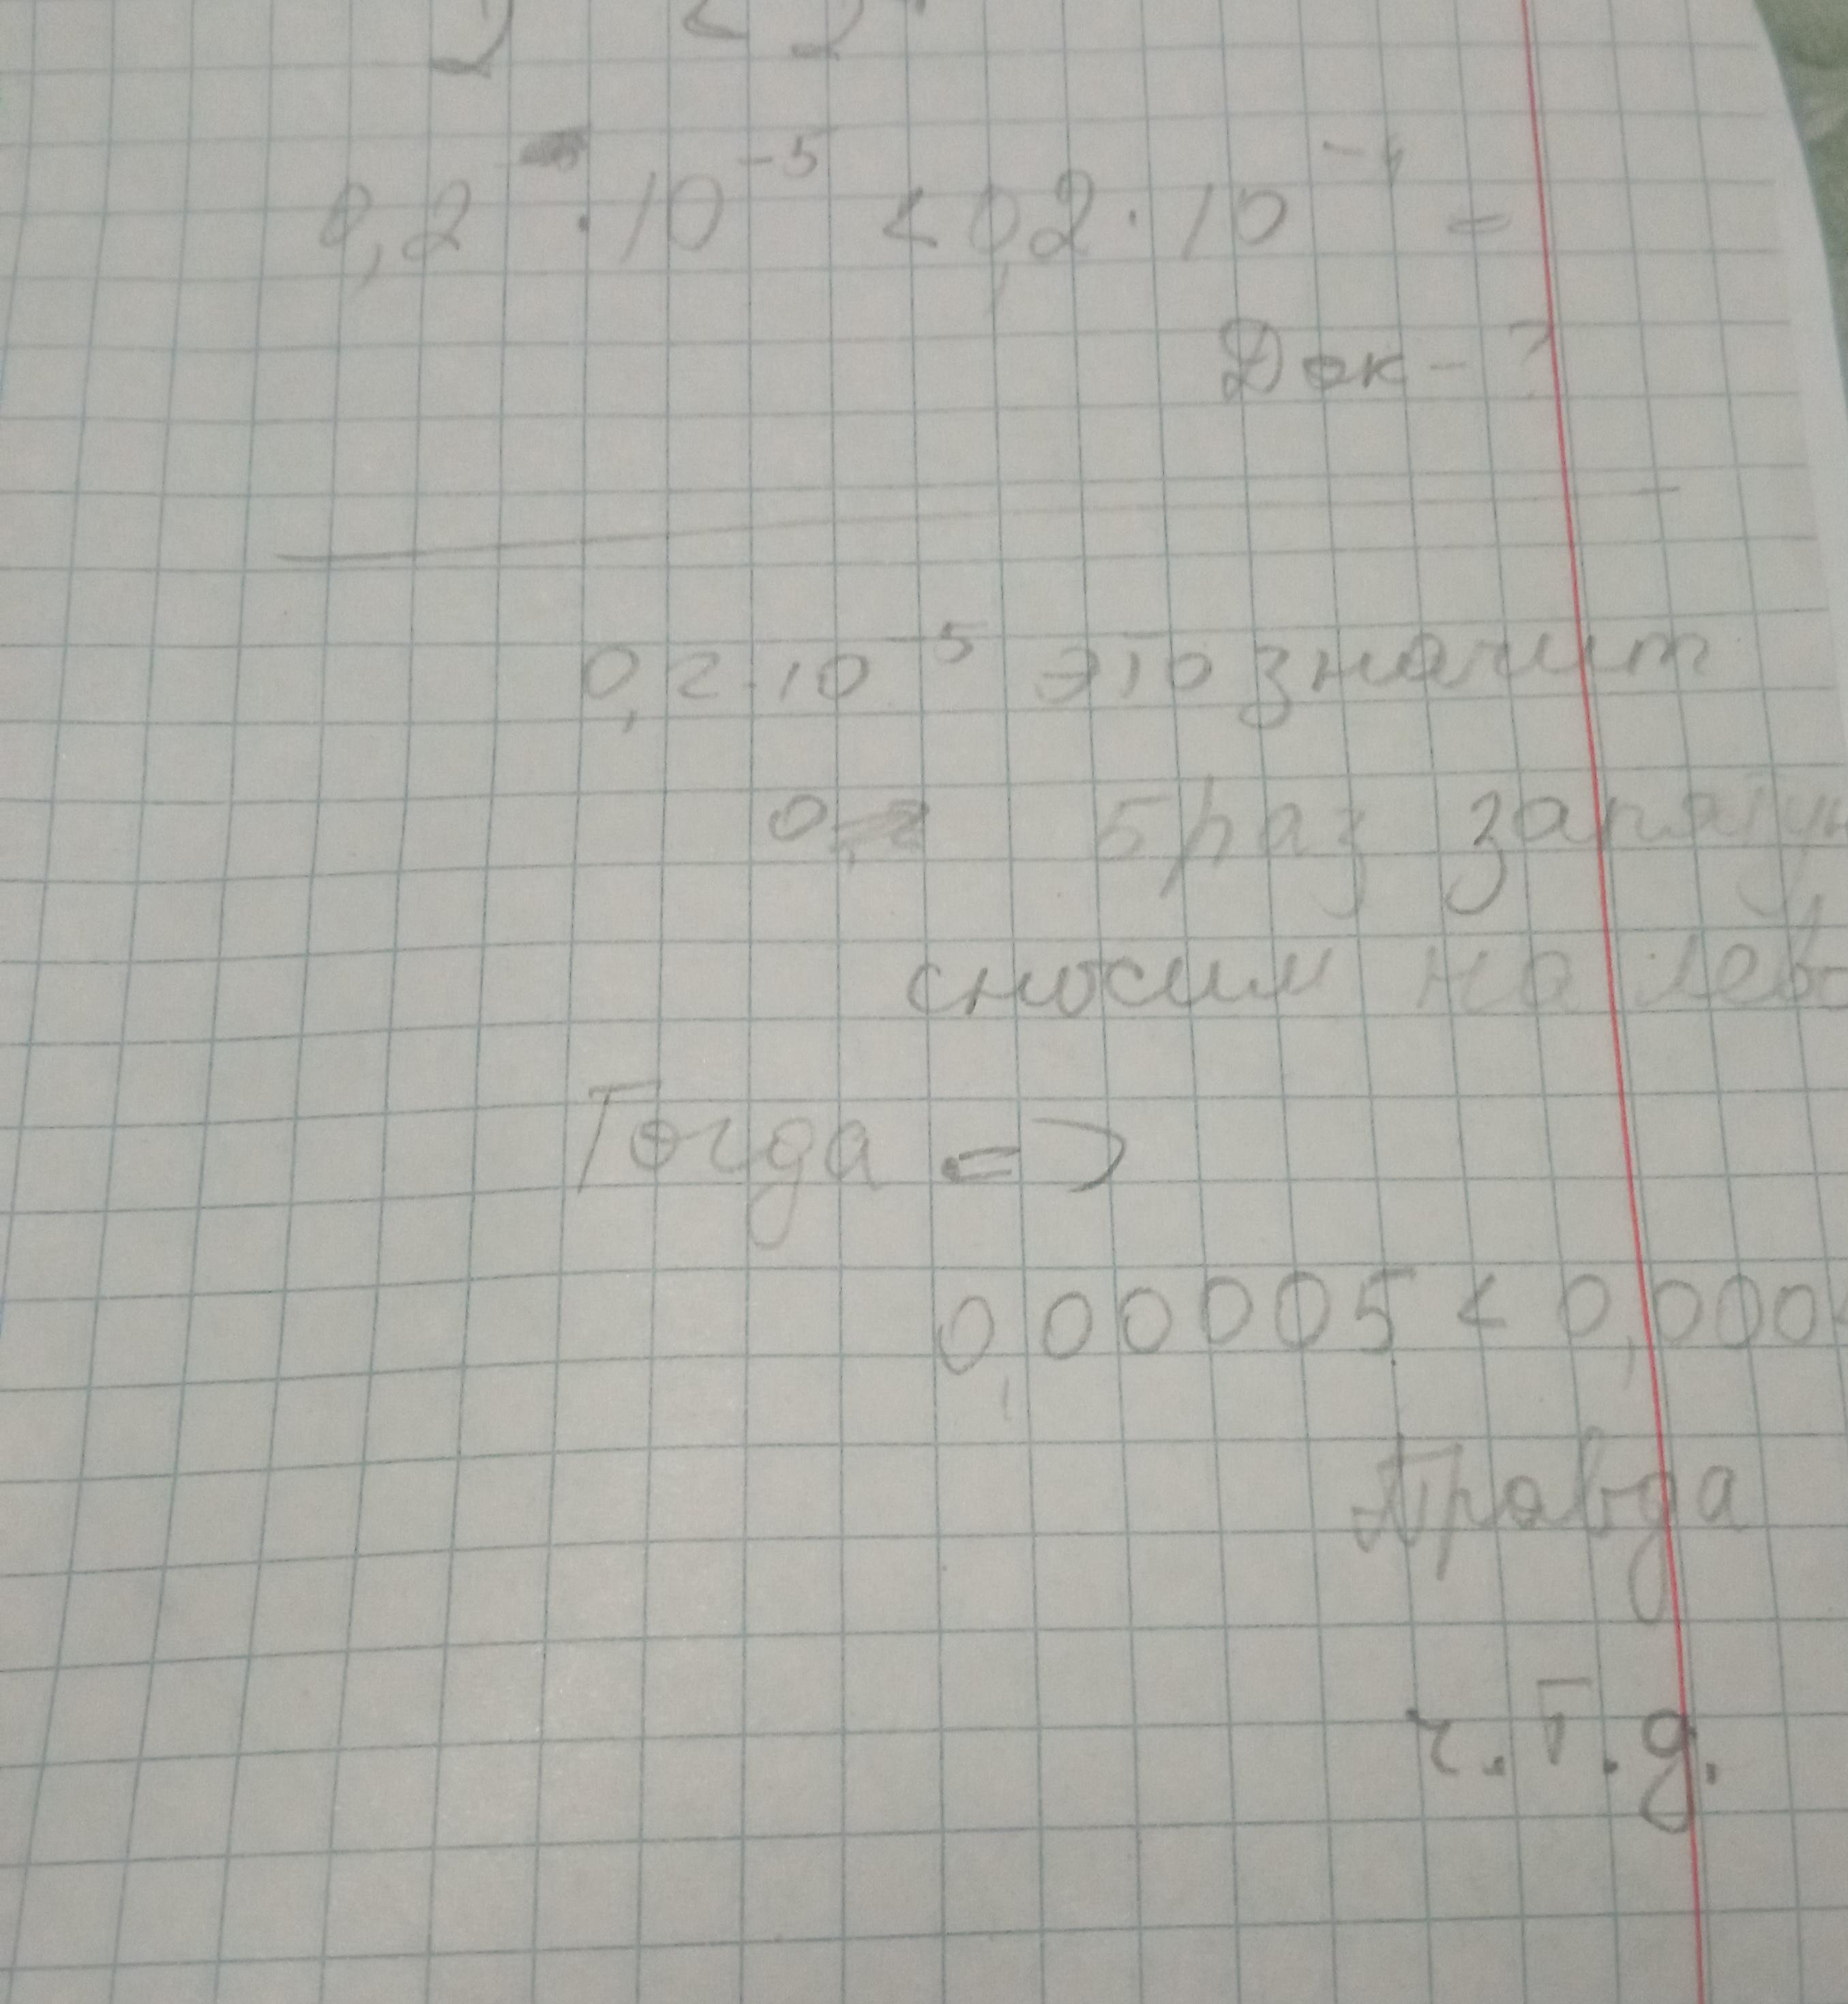 0,2 · 10⁻⁵ < 0,2 · 10⁻⁴ =
Док - ?
0,2 · 10⁻⁵ это значит
5 раз
сносим на
Тогда =>
0,000005 < 0,000
Правда
ч.т.д.